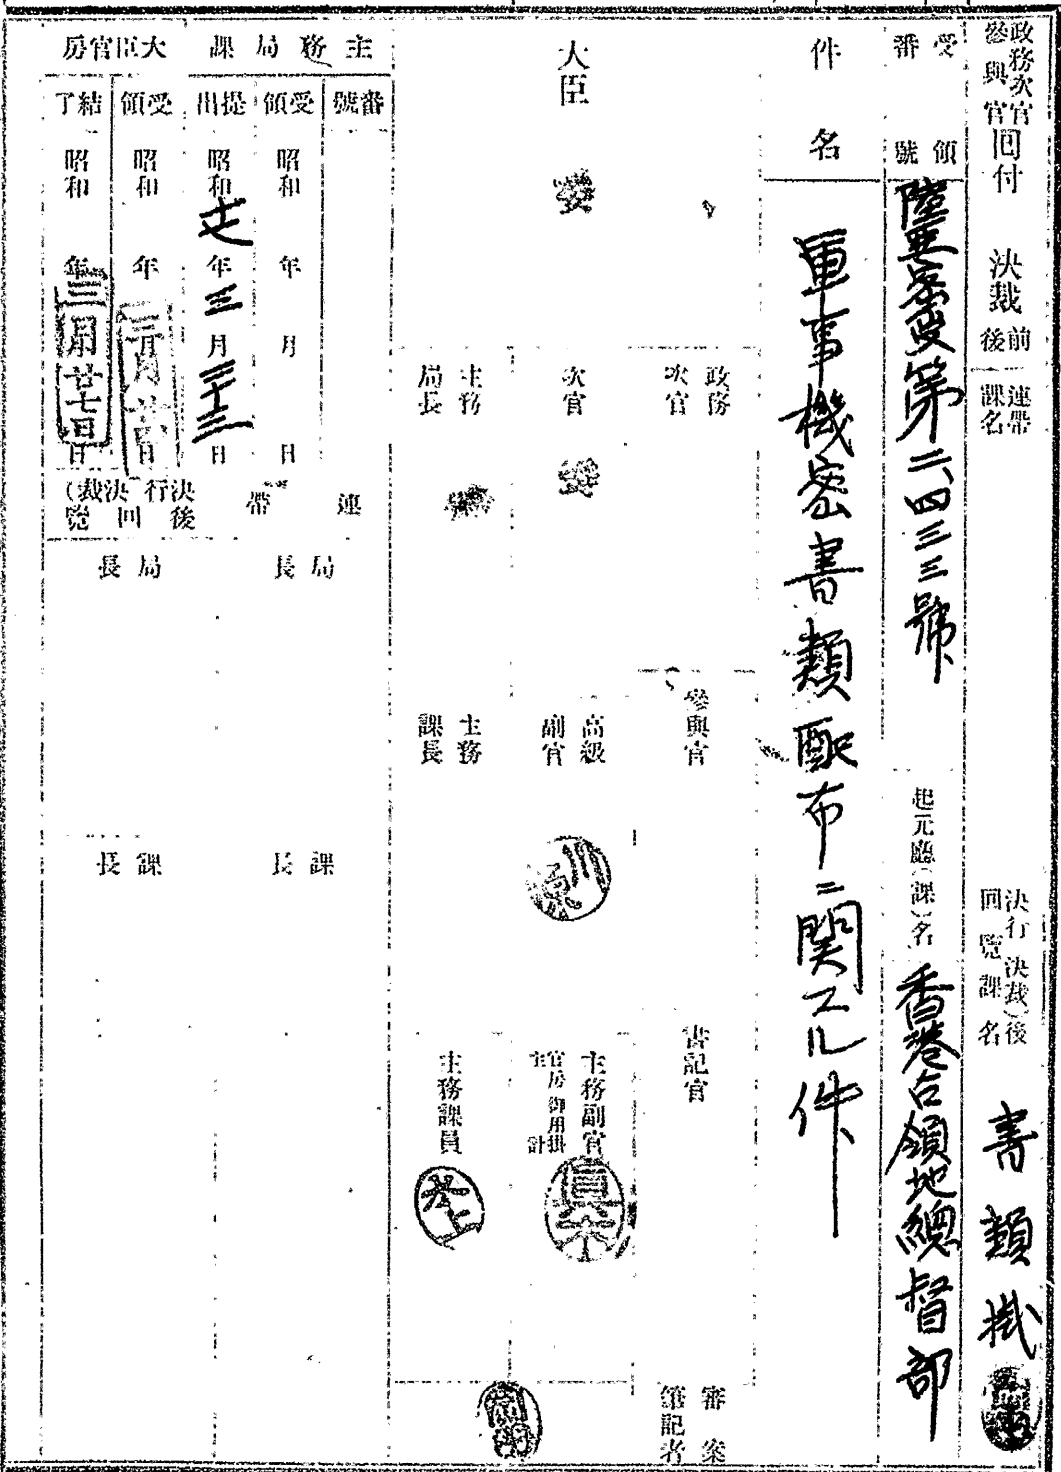 政務次官
參與官
回付
決裁
前
後
連帶
課名
決行(決裁)後
回覽課名
書類掛
受領
番號
陸亜密受第二六四三三號
起元廳(課)名
香港占領地總督部
件名
軍事機密書類配布ニ関スル件
大臣
委
政務
次官
次官
委
主務
局長
參與官
高級
副官
川原
主務
課長
書記官
主務副官
官房御用掛
主計
眞木
主務課員
井上
審案
筆記者
主務局課
番號
受領
昭和
年
月
日
提出
昭和
十七
年
三
月
二十三
日
大臣官房
受領
昭和
年
三月
日
結了
昭和
年
三月廿七日
連帶
局長
課長
決行(決裁)
後回覽
局長
課長